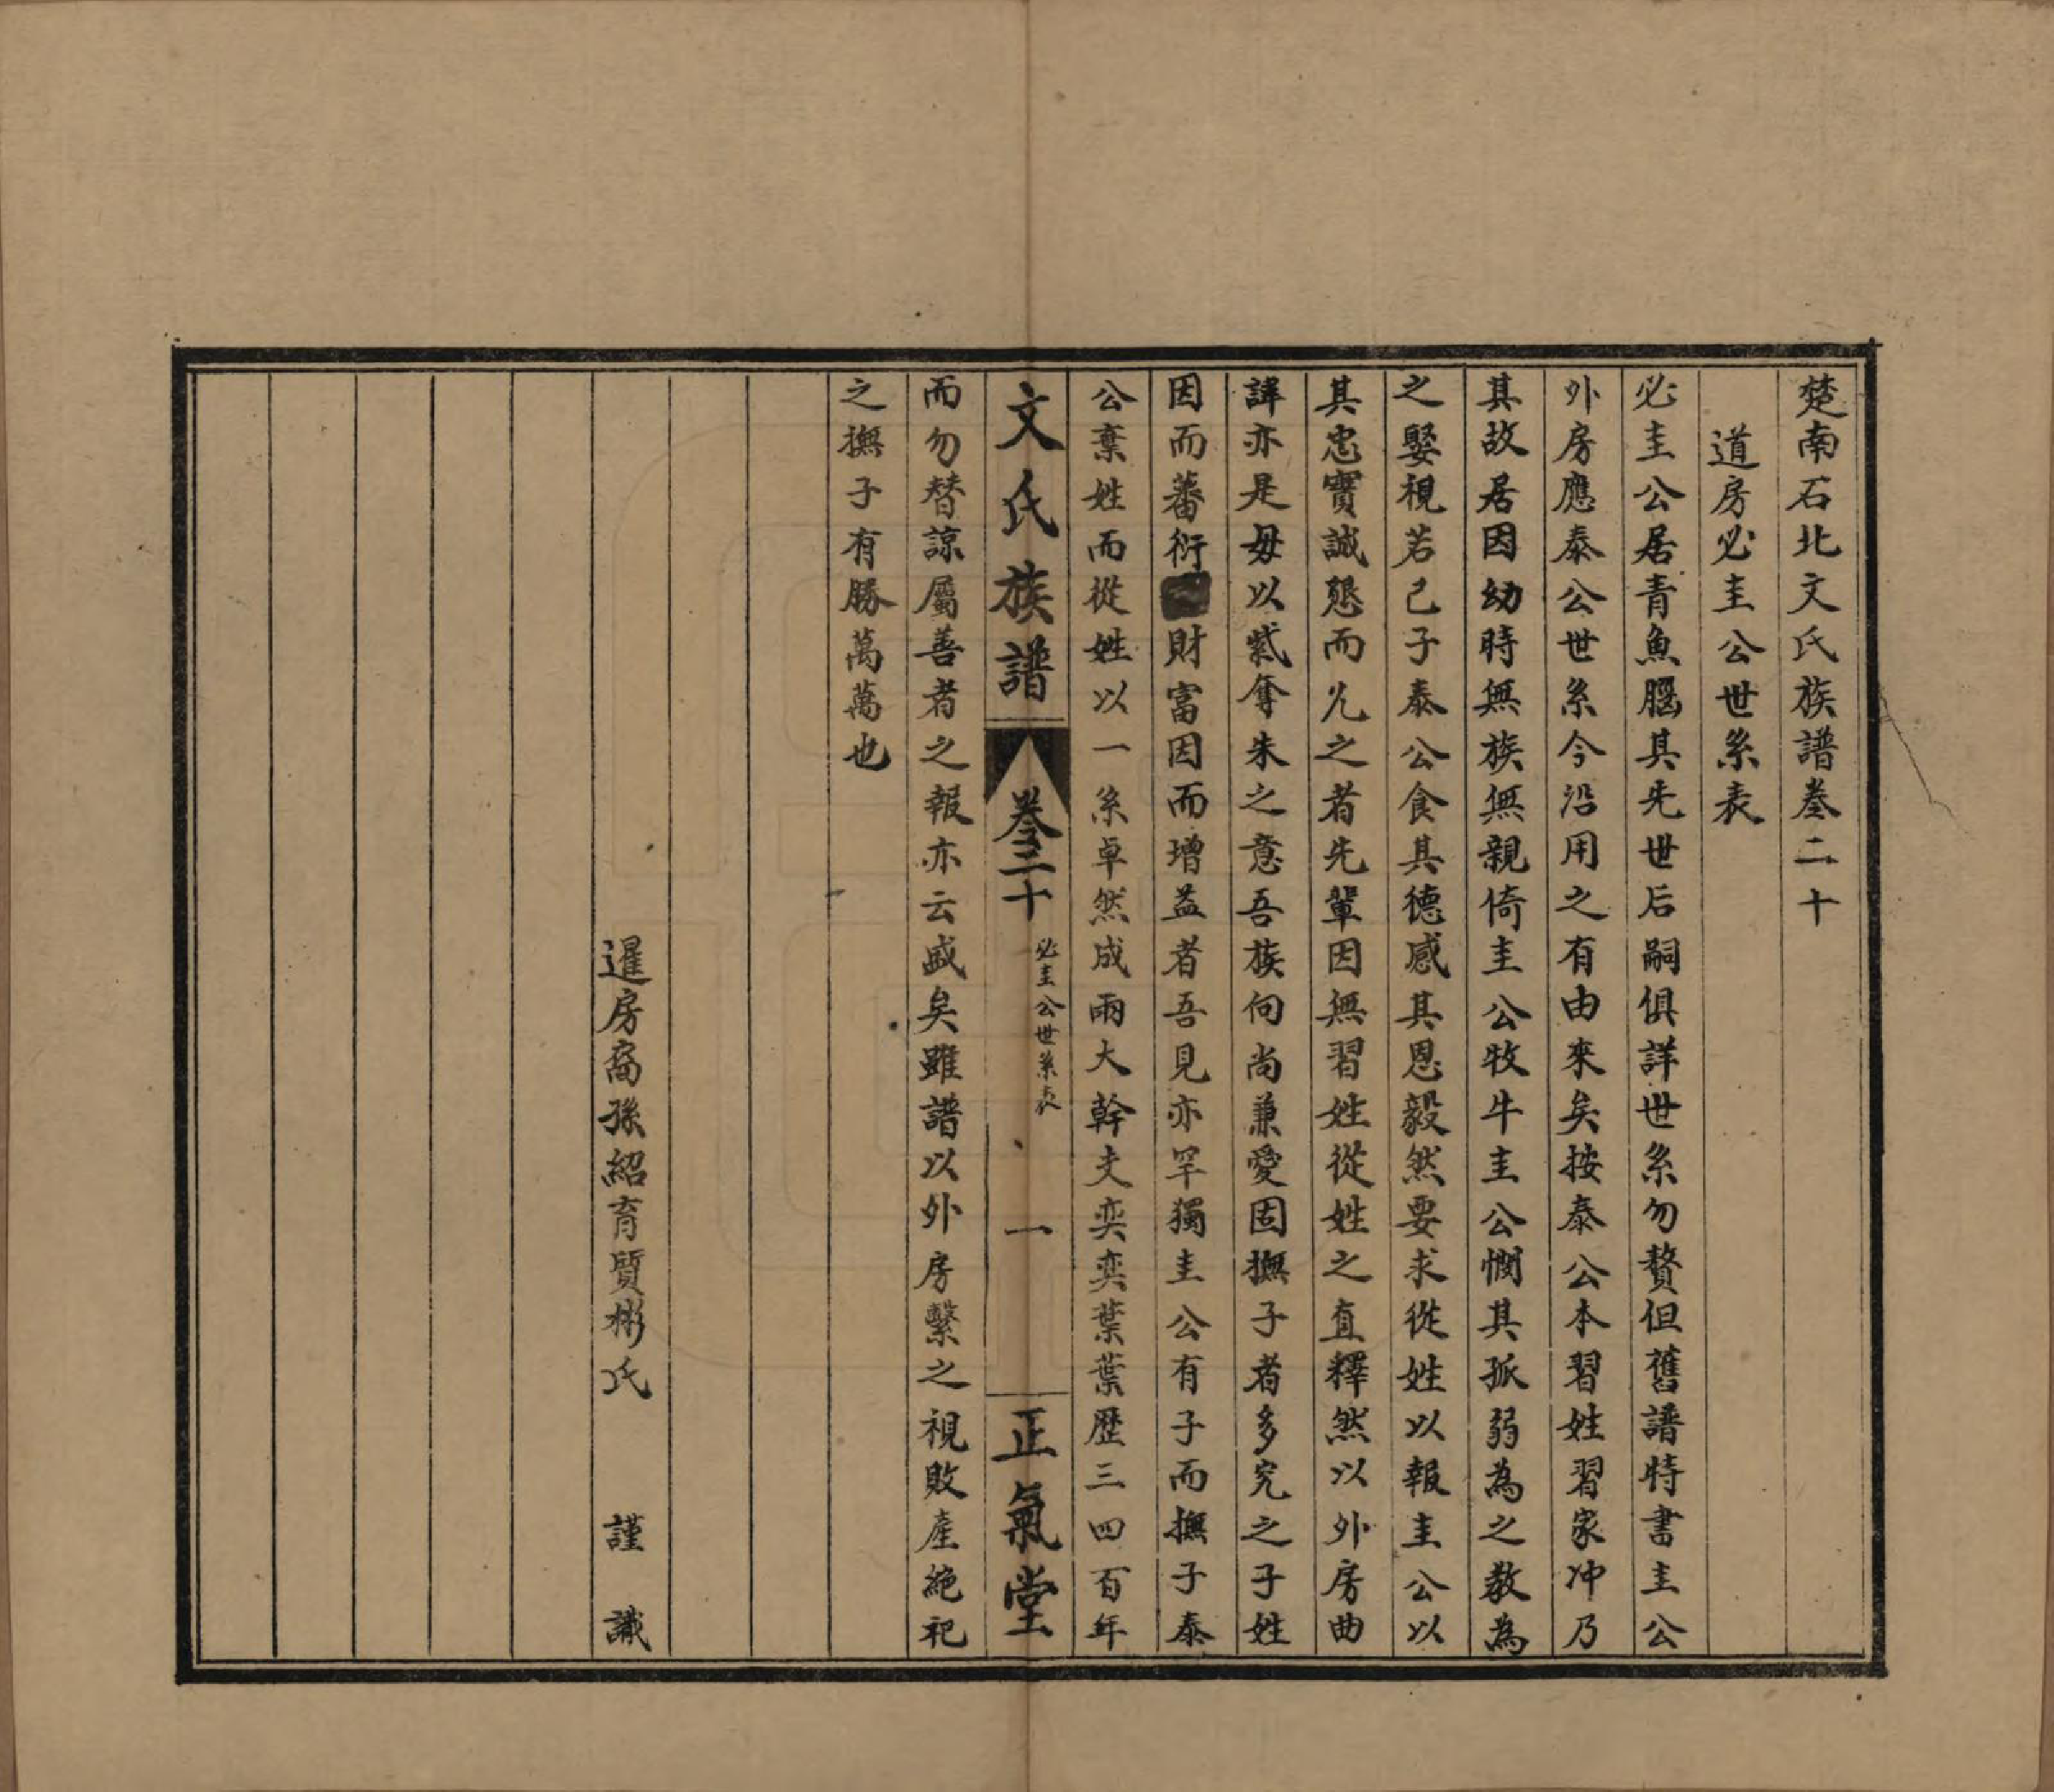 楚南石北文氏族譜卷二十
道房必圭公世系表
必圭公居青魚腦其先世后嗣俱詳世系勿贅但舊譜特書圭公
外房應泰公世系今沿用之有由來矣按泰公本習姓習家冲乃
其故居因幼時無族無親倚圭公牧牛圭公憫其孤弱為之教為
之娶視若己子泰公食其德感其恩毅然要求從姓以報圭公以
其忠實誠懇而允之者先輩因無習姓從姓之直釋然以外房曲
譁亦是毋以紫奪朱之意吾族向尚兼愛固撫子者多究之子姓
因而蕃衍財富因而增益者吾見亦罕獨圭公有子而撫子泰
公棄姓而從姓以一系卓然成兩大幹支奕奕葉葉歷三四百年
文氏族譜
卷二十
必圭公世系表
一
正氣堂
而勿替諒屬善者之報亦云盛矣雖譜以外房繫之視敗產絶祀
之撫子有勝萬萬也
暹房裔孫紹育質彬氏 謹識